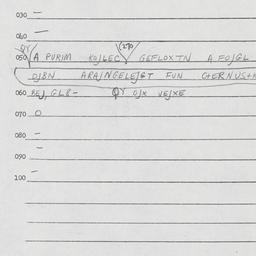 030 —
040 —
QY (270)
050 A PURIM KOJLEC GEFLOXTN A FOJGL
OJBN ARAJNGELEJGT FUN
060 BEJ, GLB- QY OJX VEJXE
070 O
080 —
090 —
100 —